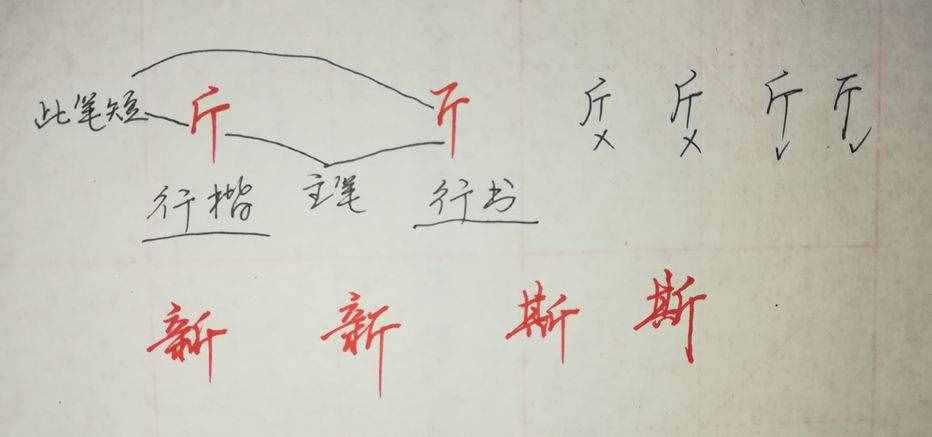 此笔短 斤 斤 斤 斤 斤 斤
行楷 主笔 行书
新 新 斯 斯